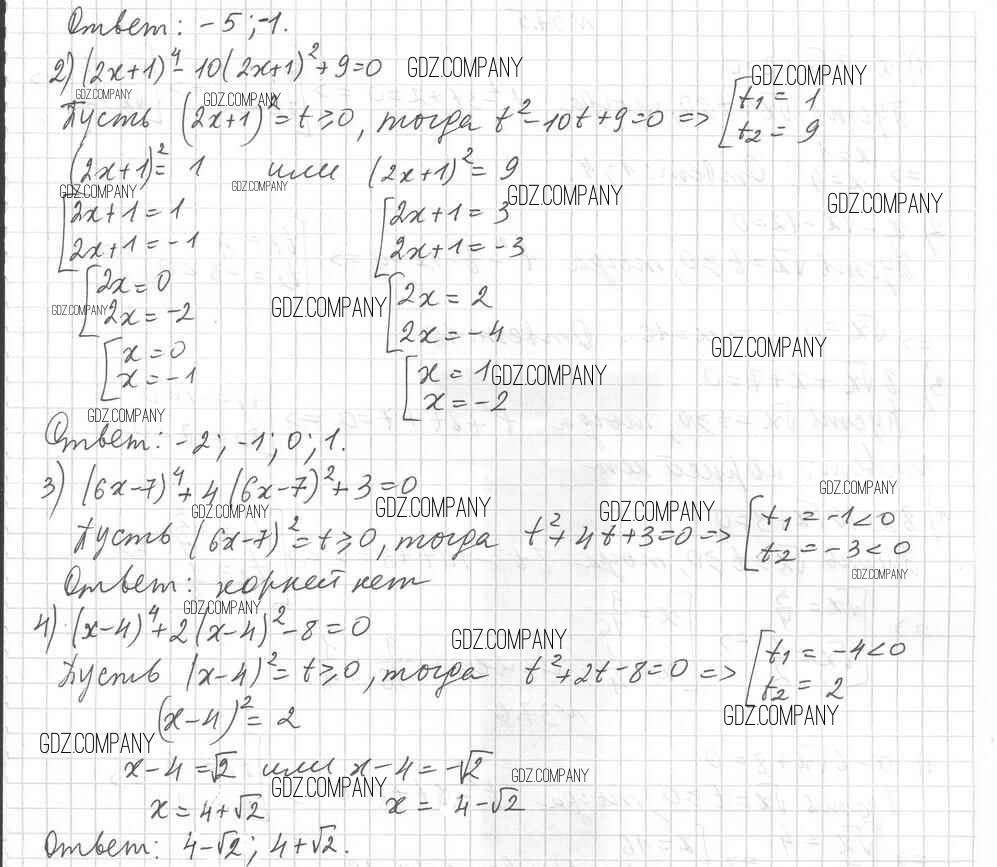 Ответ: -5; -1.
2) (2x+1)⁴ - 10(2x+1)² + 9 = 0 GDZ.COMPANY
GDZ.COMPANY GDZ.COMPANY GDZ.COMPANY
Пусть (2x+1)² = t ≥ 0, тогда t² - 10t + 9 = 0 => [t₁ = 1
t₂ = 9
(2x+1)² = 1 или (2x+1)² = 9
GDZ.COMPANY GDZ.COMPANY GDZ.COMPANY GDZ.COMPANY
[2x+1 = 1 [2x+1 = 3
2x+1 = -1 2x+1 = -3
[2x = 0 [2x = 2
GDZ.COMPANY 2x = -2 GDZ.COMPANY 2x = -4
GDZ.COMPANY
[x = 0 [x = 1 GDZ.COMPANY
x = -1 x = -2
GDZ.COMPANY
Ответ: -2; -1; 0; 1.
3) (6x-7)⁴ + 4(6x-7)² + 3 = 0 GDZ.COMPANY
GDZ.COMPANY GDZ.COMPANY GDZ.COMPANY
Пусть (6x-7)² = t ≥ 0, тогда t² + 4t + 3 = 0 => [t₁ = -1 < 0
t₂ = -3 < 0
GDZ.COMPANY
Ответ: корней нет
GDZ.COMPANY
4) (x-4)⁴ + 2(x-4)² - 8 = 0 GDZ.COMPANY
Пусть (x-4)² = t ≥ 0, тогда t² + 2t - 8 = 0 => [t₁ = -4 < 0
t₂ = 2
(x-4)² = 2 GDZ.COMPANY
GDZ.COMPANY
x-4 = √2 или x-4 = -√2 GDZ.COMPANY
GDZ.COMPANY
x = 4+√2 x = 4-√2
Ответ: 4-√2; 4+√2.